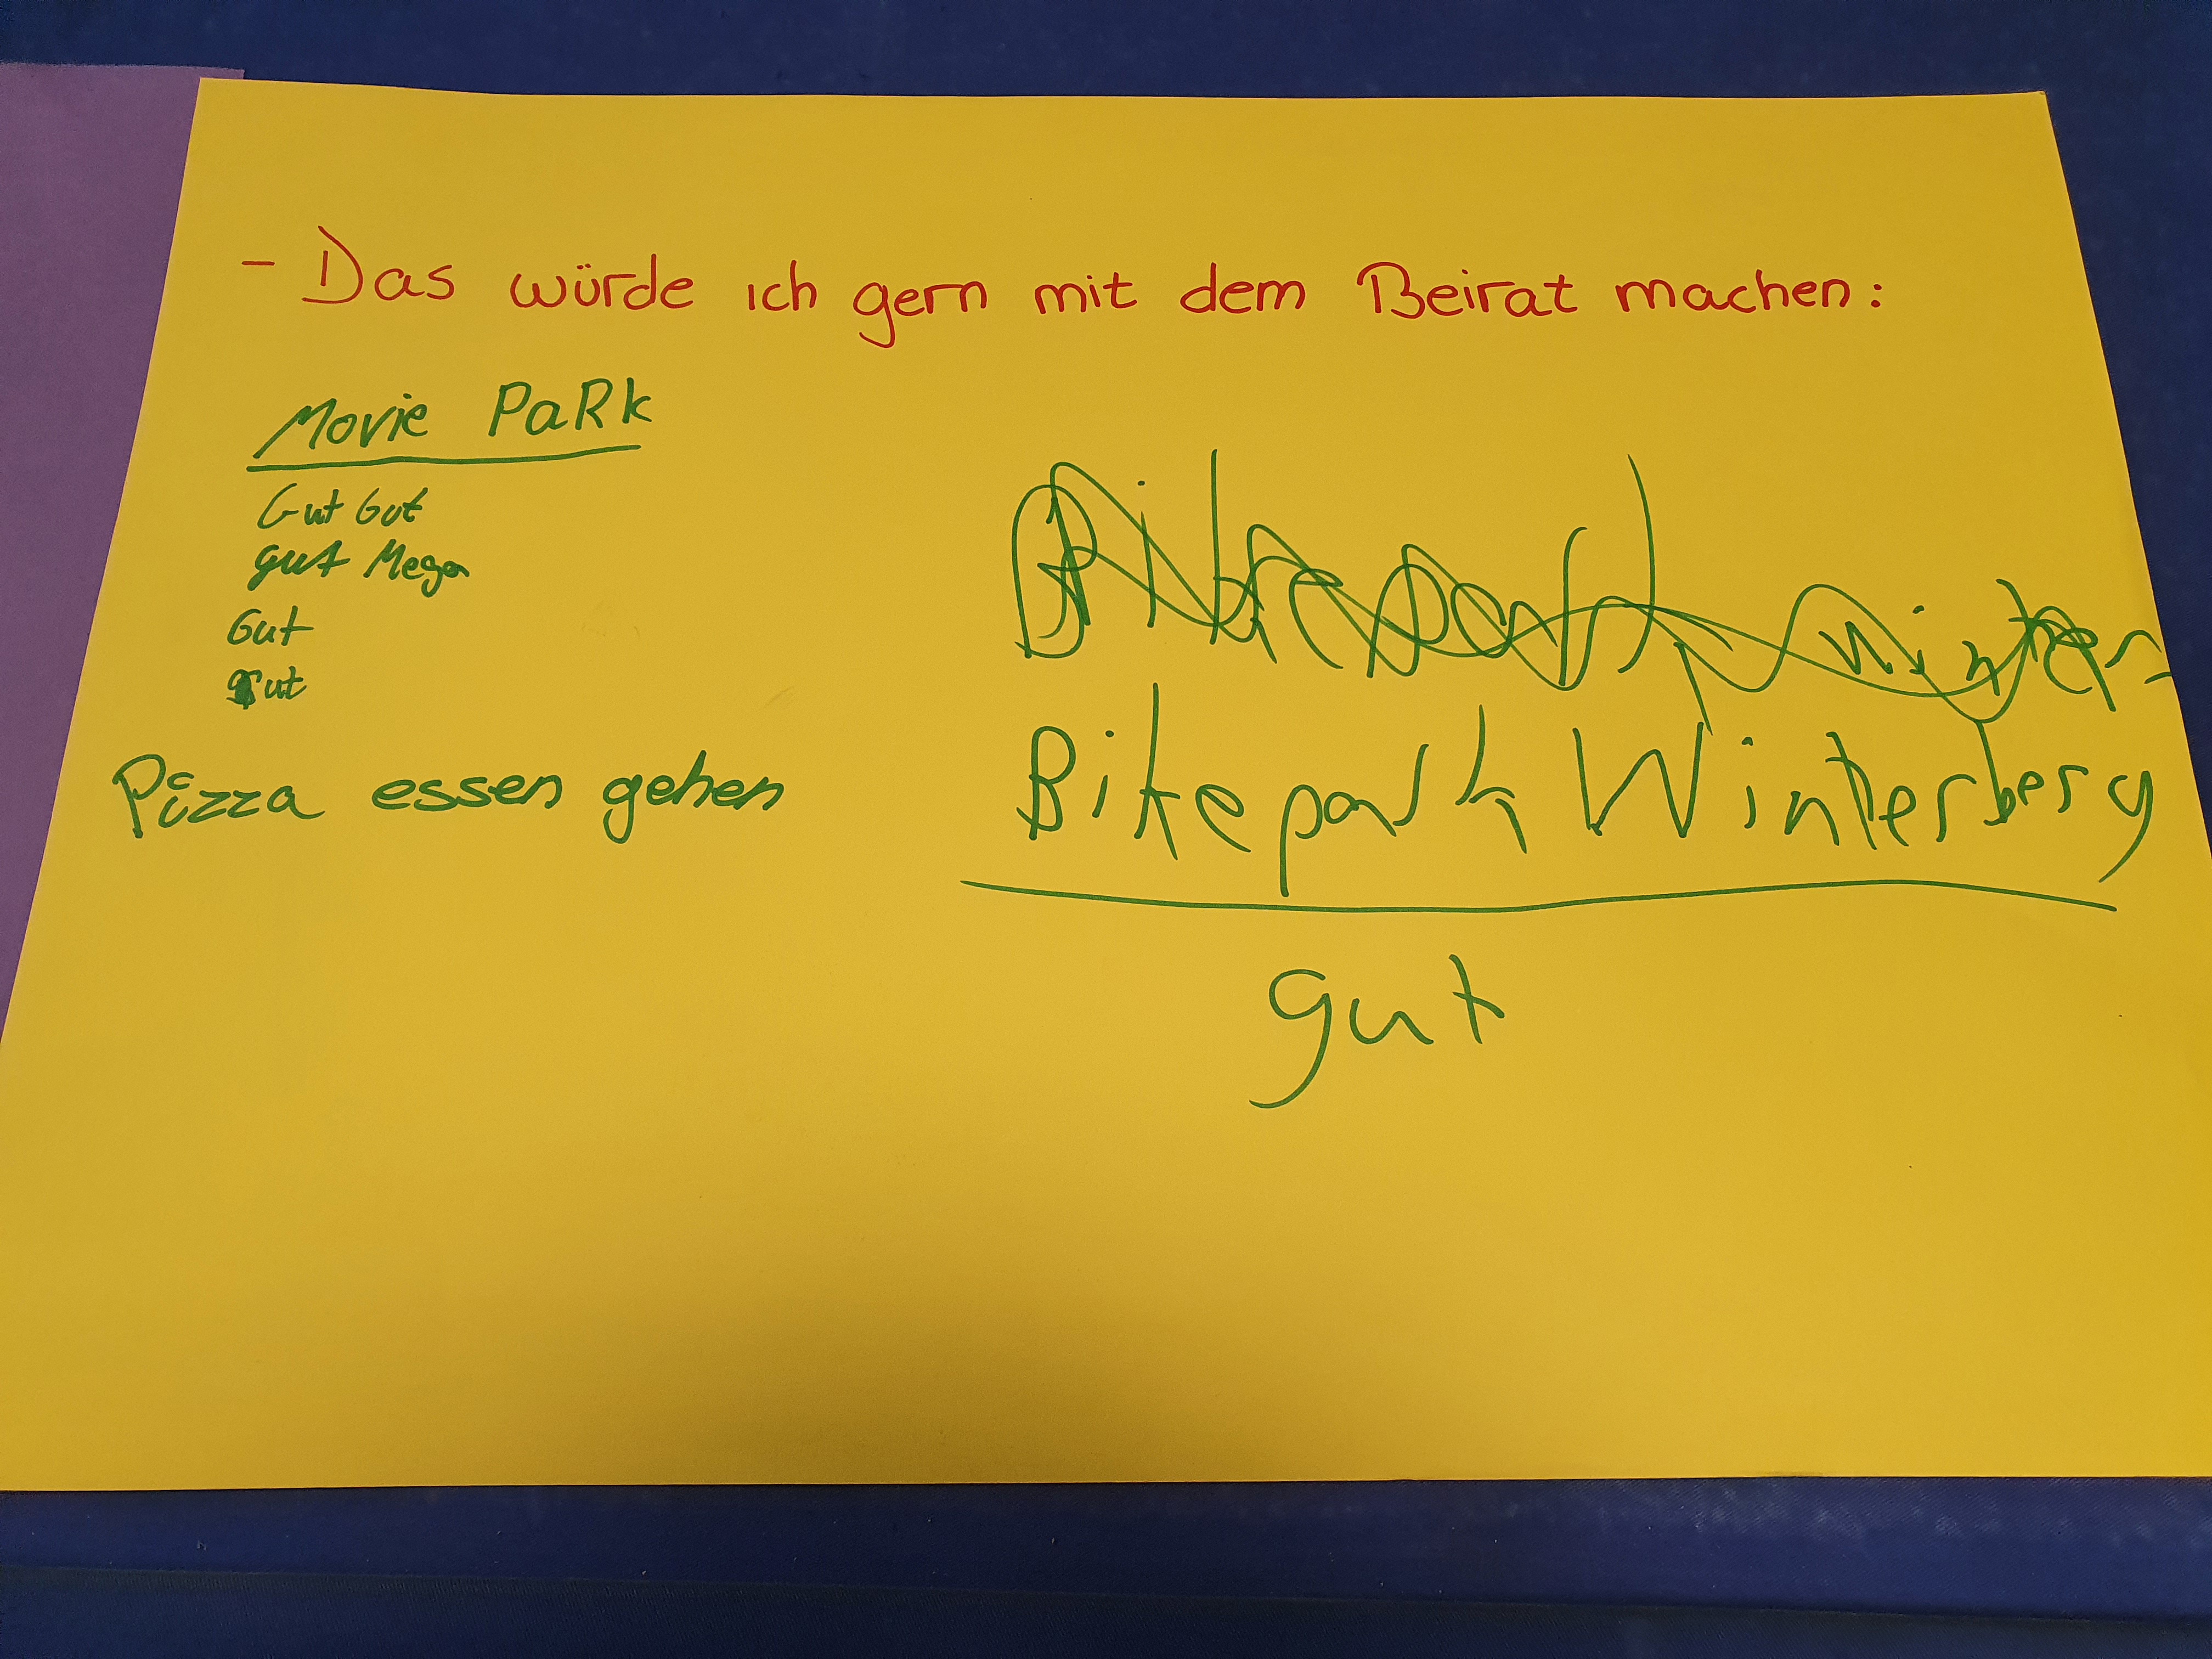 - Das würde ich gern mit dem Beirat machen:
Movie PaRk
Gut Gut
gut Mega
Gut
gut
Pizza essen gehen
Bikepark Winterberg
gut